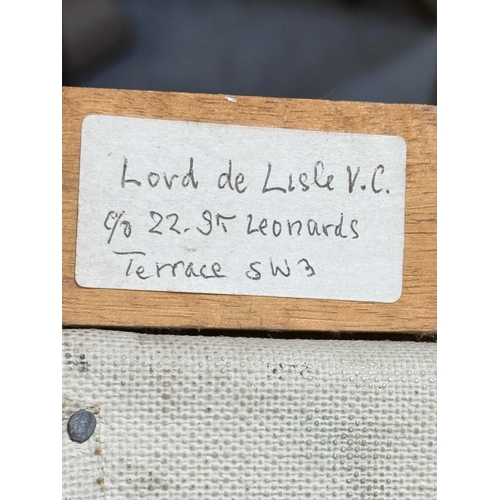 Lord de Lisle V.C.
c/o 22. St Leonards
Terrace SW3